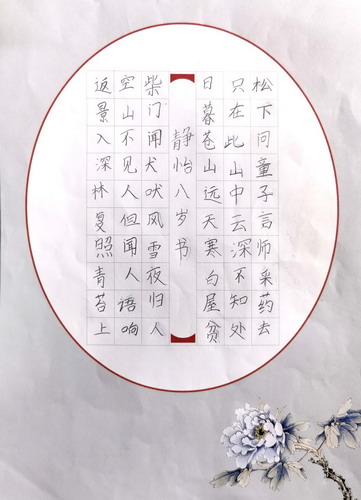 松下问童子言师采药去
只在此山中云深不知处
日暮苍山远天寒白屋贫
静怡八岁书
柴门闻犬吠风雪夜归人
空山不见人但闻人语响
返景入深林复照青苔上